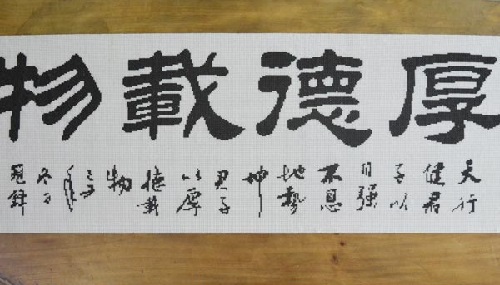 厚德載物
天行
健君
子以
自强
不息
地勢
坤
君子
以厚
德載
物
冬月